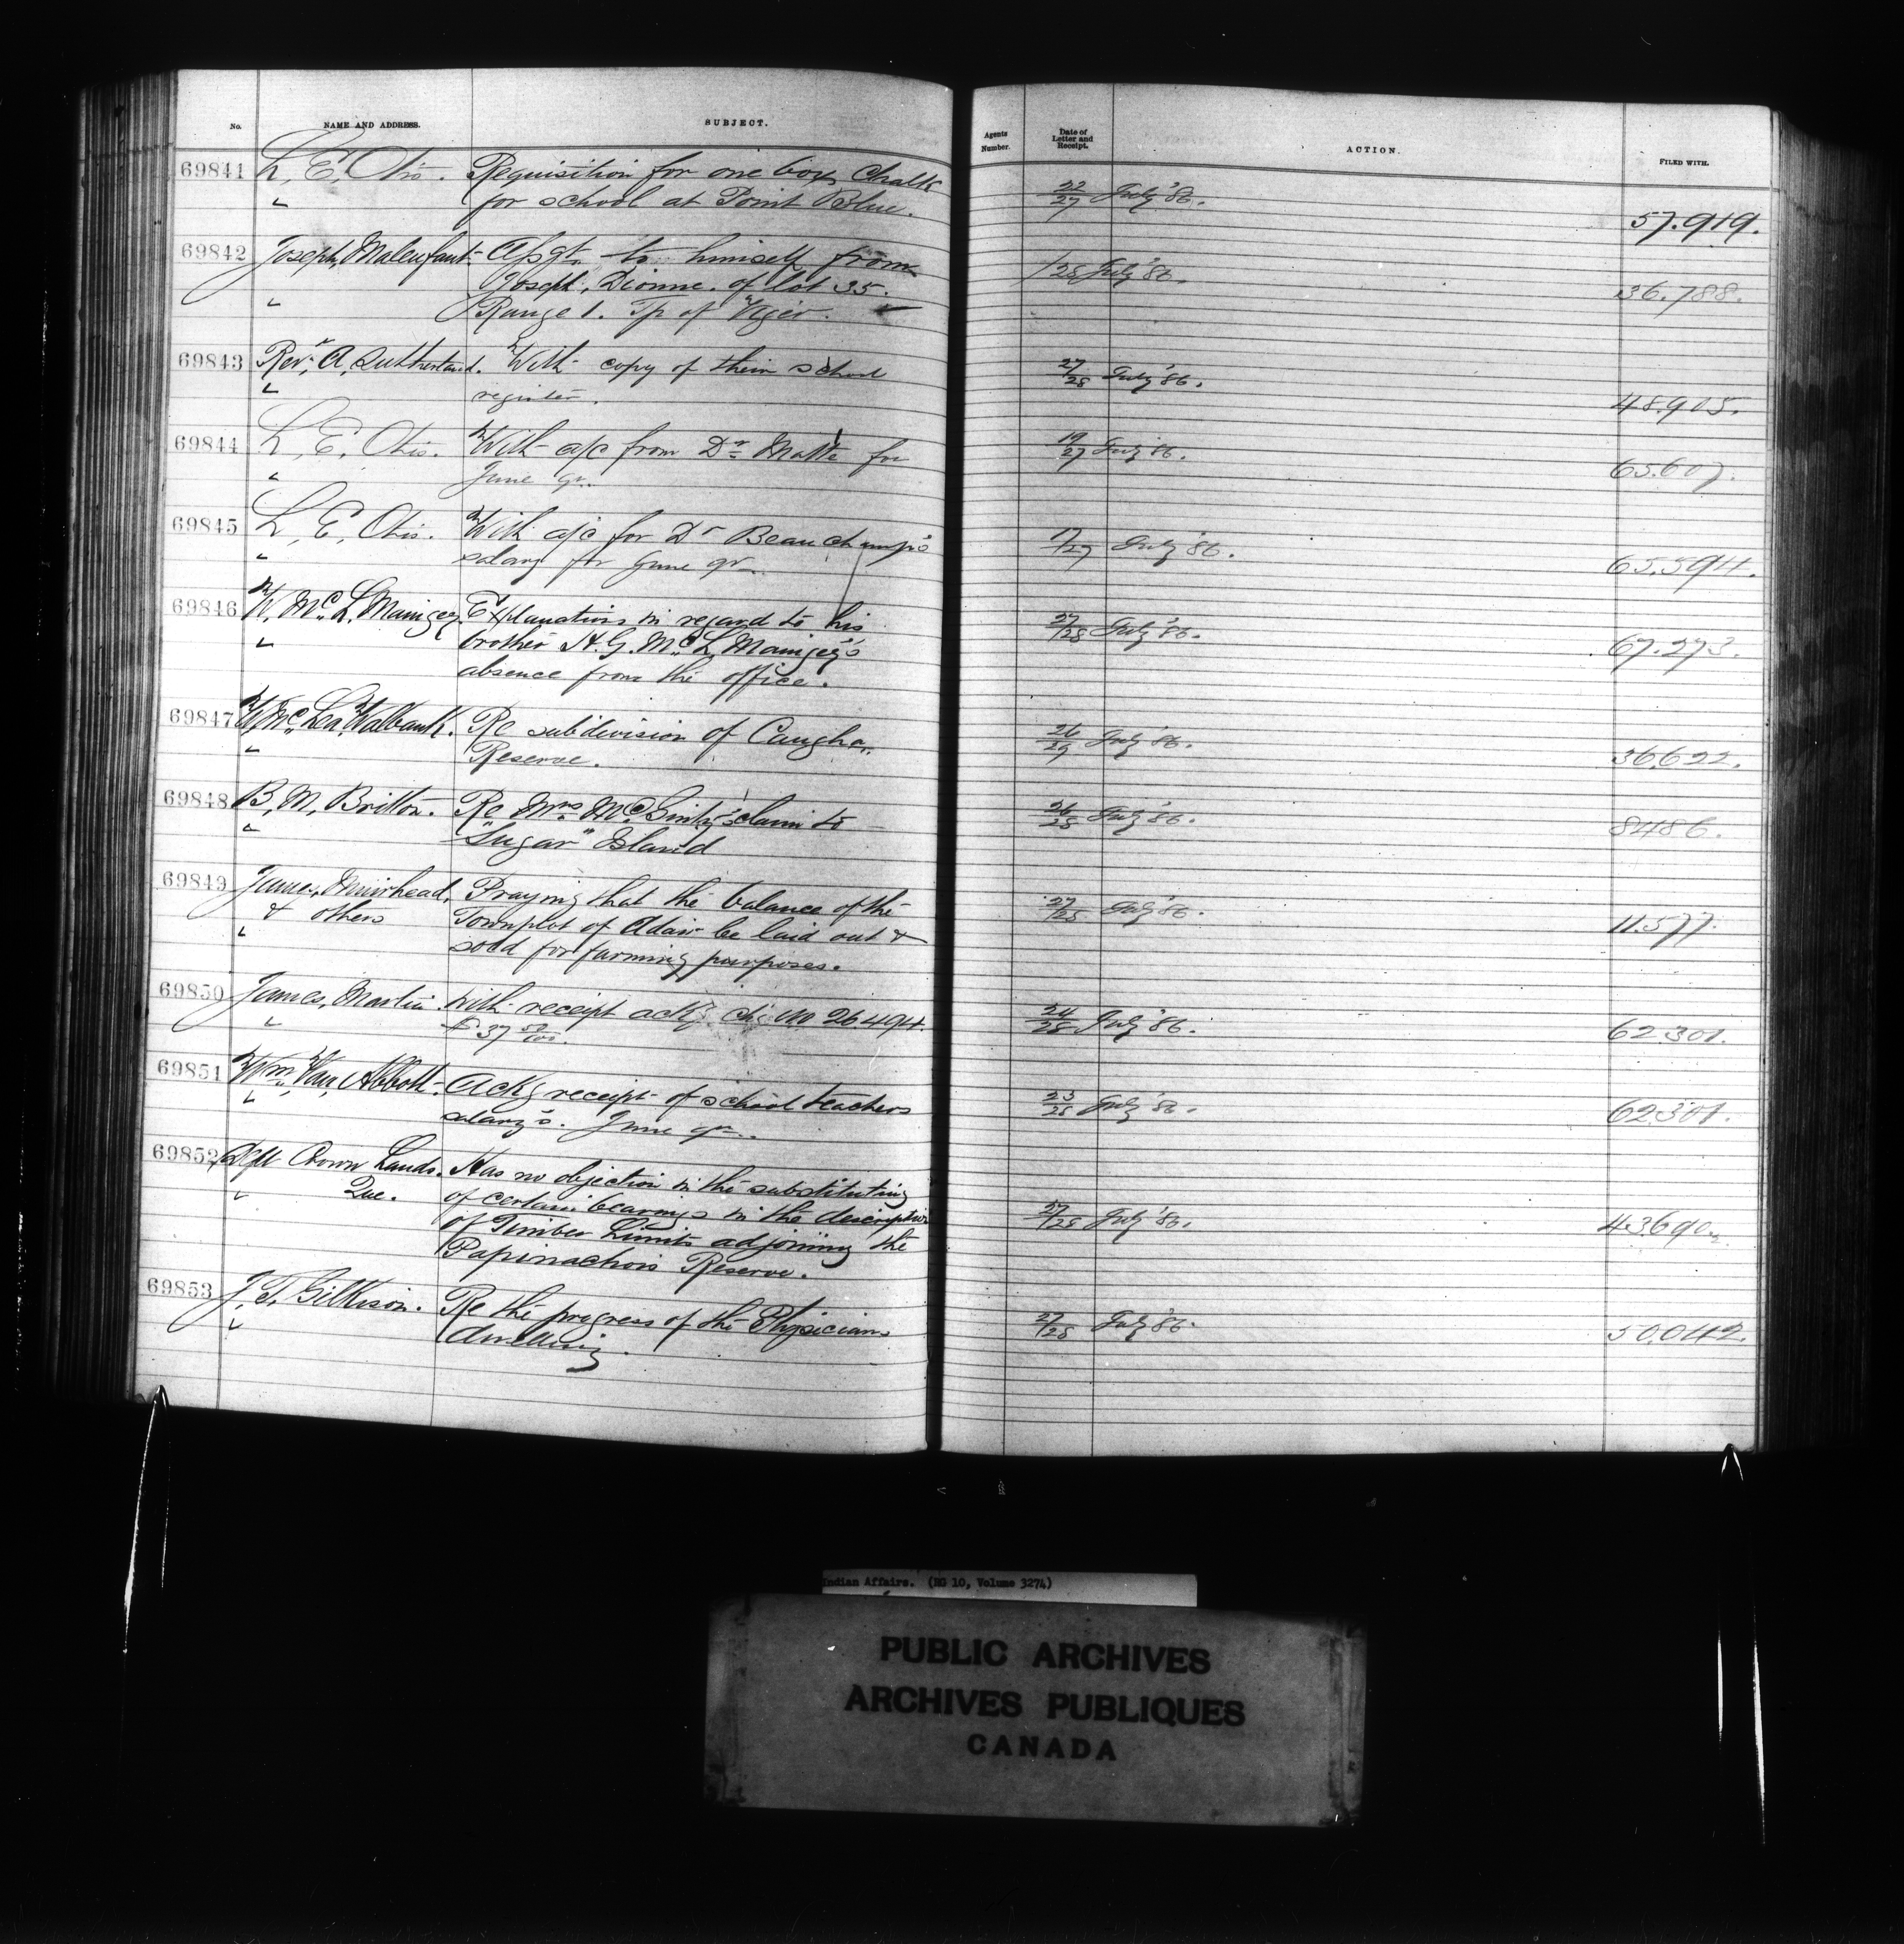 No. NAME AND ADDRESS. SUBJECT. Agents Number. Date of Letter and Receipt. ACTION. FILED WITH.
69841 L. E. Otis. Requisition for one box Chalk 22/27 July '86. 57.919.
for school at Point Blue.
69842 Joseph Malenfant. Assgt. to himself from /28 July '86. 36.788.
Joseph Dionne. of lot 35.
Range 1. Tp of Viger.
69843 Rev. A. Sutherland. With copy of their school 27/28 July '86. 48.905.
register.
69844 L. E. Otis. With a/c from Dr Matte for 19/27 July '86. 65.607.
June qr.
69845 L. E. Otis. With a/c for Dr Beauchamp's 17/27 July '86. 65.594.
salary for June qr
69846 W. Mc. L. Maingey. Explanation in regard to his 27/28 July '86. 67.273.
brother H. G. Mc L. Maingey's
absence from the office.
69847 W. Mc Lea Walbank. Re subdivision of Caughn. 26/29 July '86. 36.622.
Reserve.
69848 B. M. Britton. Re Mrs McGinty's claim to 26/28 July '86. 8486.
"Sugar" Island
69849 James Muirhead, Praying that the balance of the 27/28 July '86. 11.577.
& others Townplot of Adair be laid out &
sold for farming purposes.
69850 James Martin. With receipt ackg ch. no 26494 24/28 July '86. 62.301.
f 37 50/100.
69851 Wm. Van Abbott. Ackg receipt of school teachers 23/28 July '86. 62.301.
salary's. June qr.
69852 Dept Crown Lands. Has no objection in the substituting 27/28 July '86. 43.690.
Que. of certain bearings in the description
of Timber Limits adjoining the
Papinachois Reserve.
69853 J. T. Gilkison. Re the progress of the Physicians 27/28 July '86. 50.042.
dwelling.
Indian Affairs. (RG 10, Volume 3274)
PUBLIC ARCHIVES
ARCHIVES PUBLIQUES
CANADA